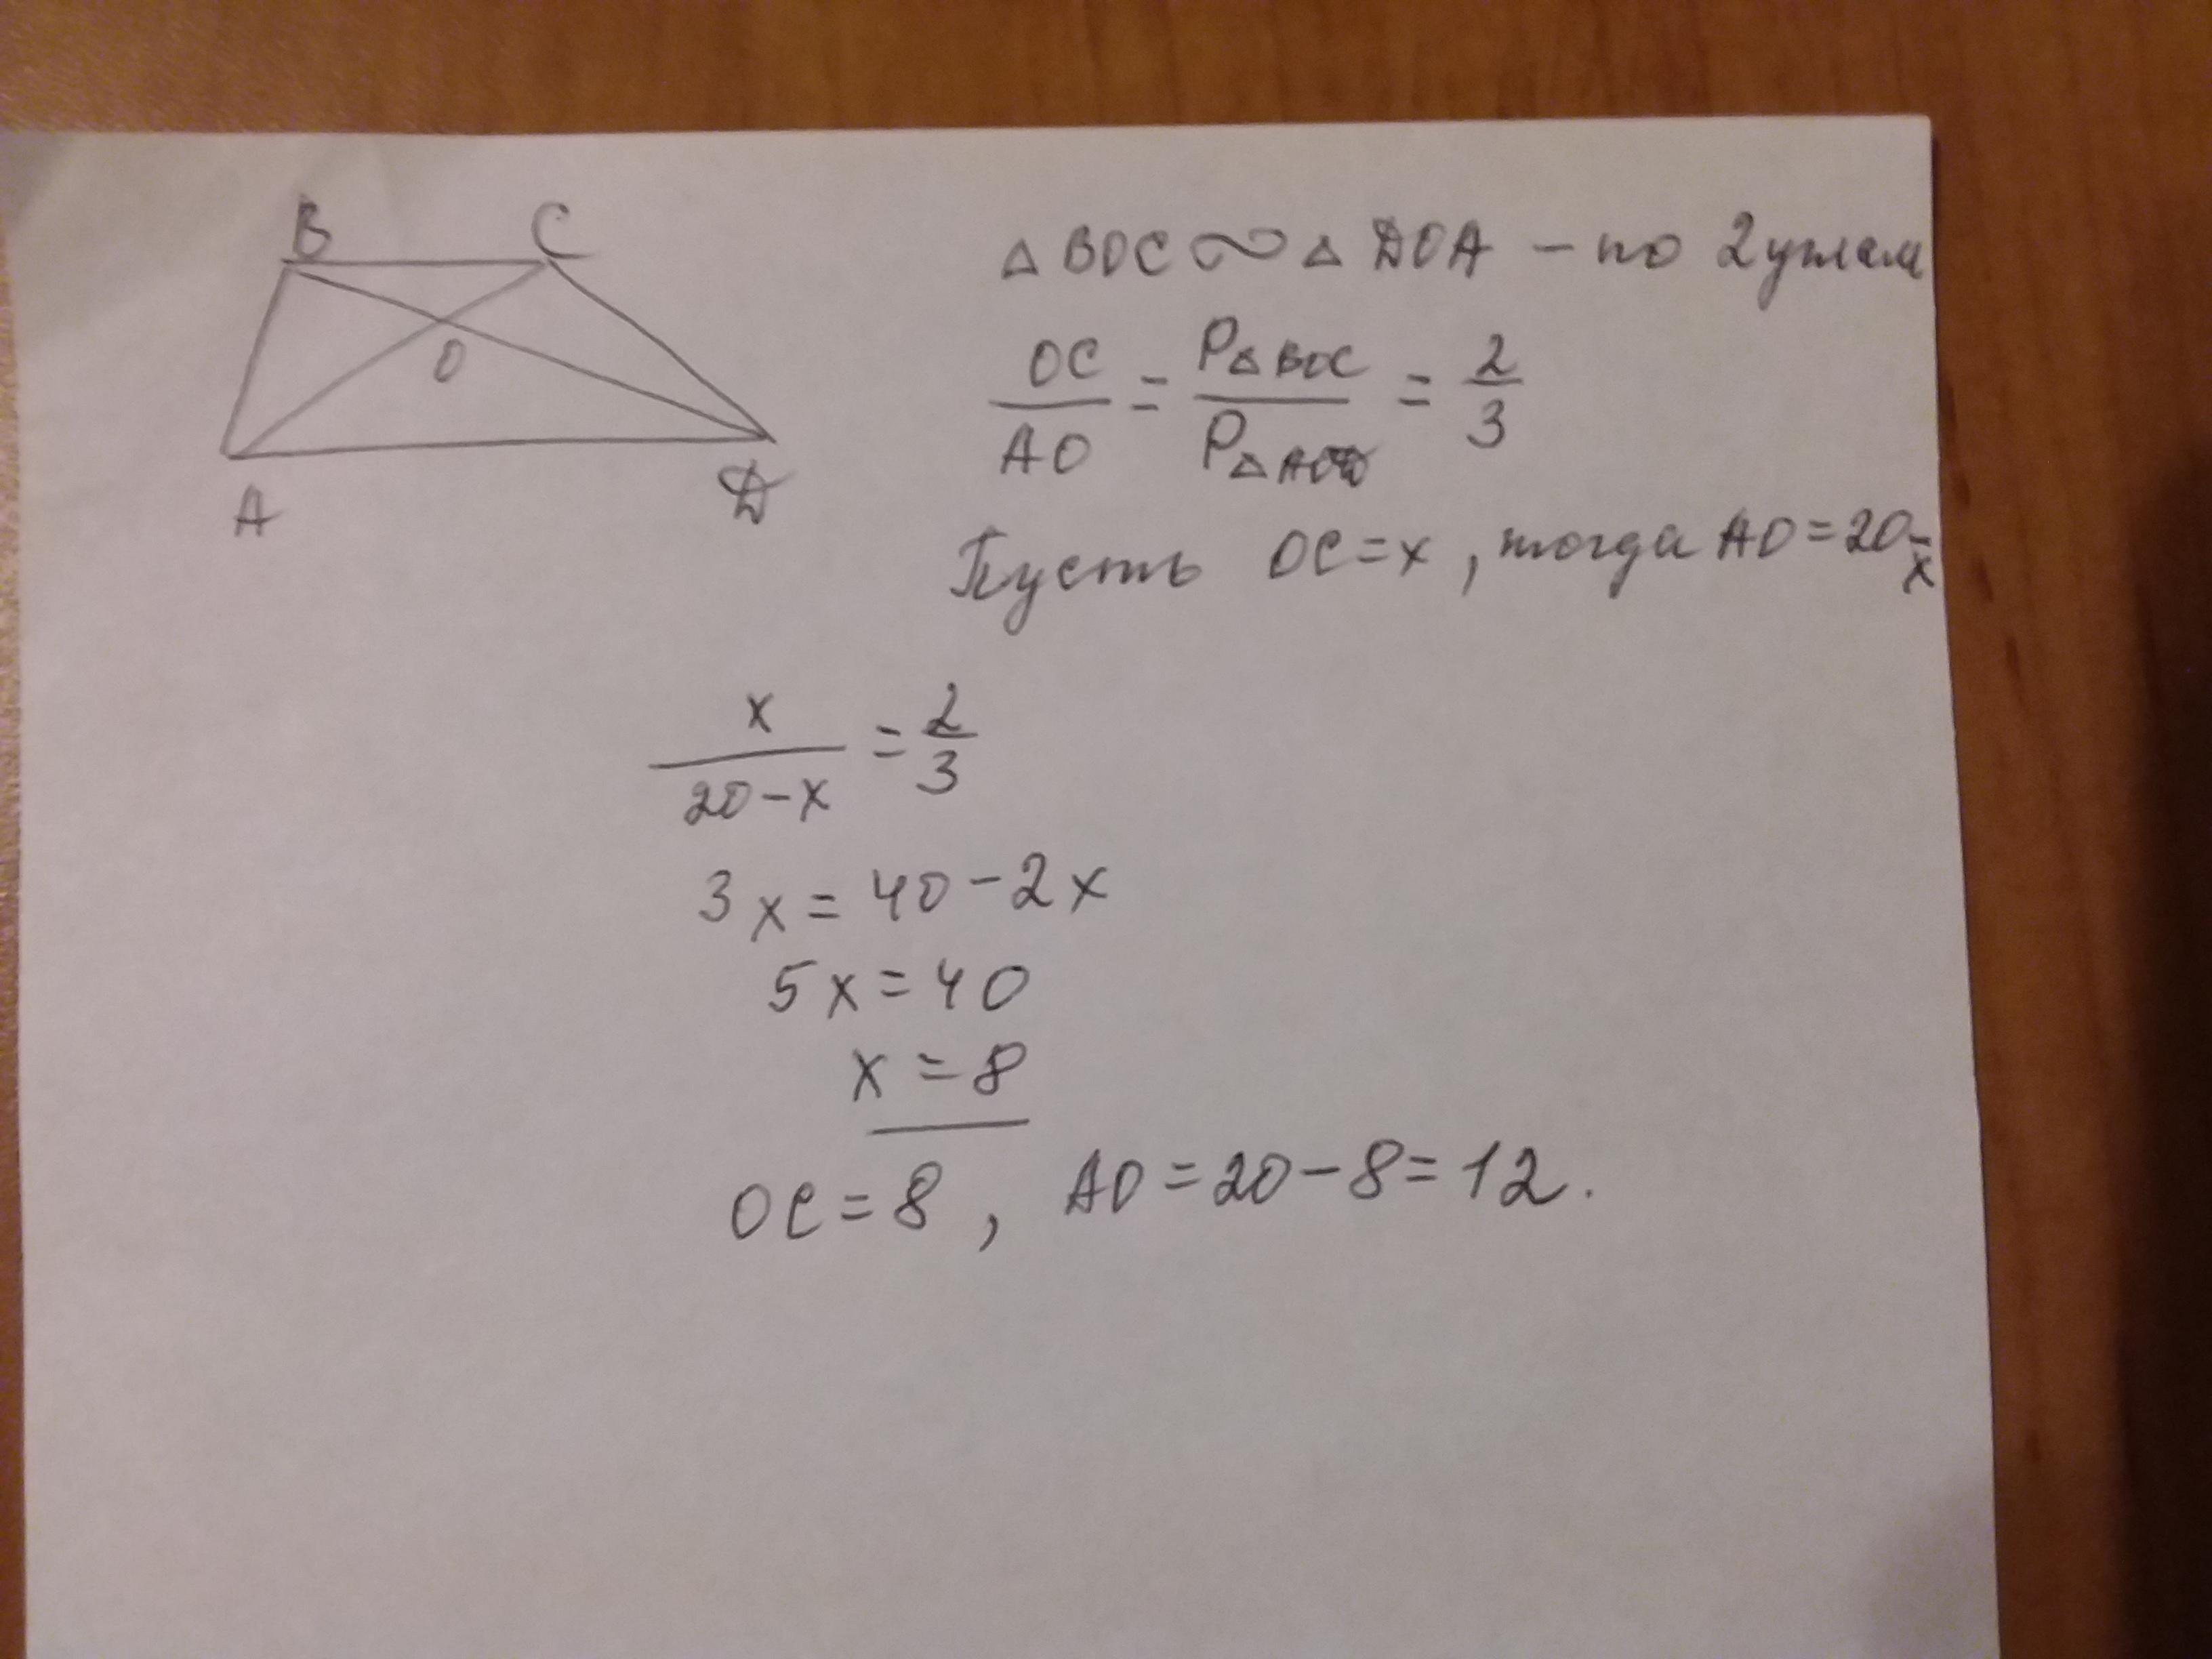 B C
O
A D
△ BOC ∾ △ DOA - по 2 углам
OC/AO = P△BOC/P△AOD = 2/3
Пусть OC=x, тогда AO=20-x
x/(20-x) = 2/3
3x=40-2x
5x=40
x=8
OC=8, AO=20-8=12.